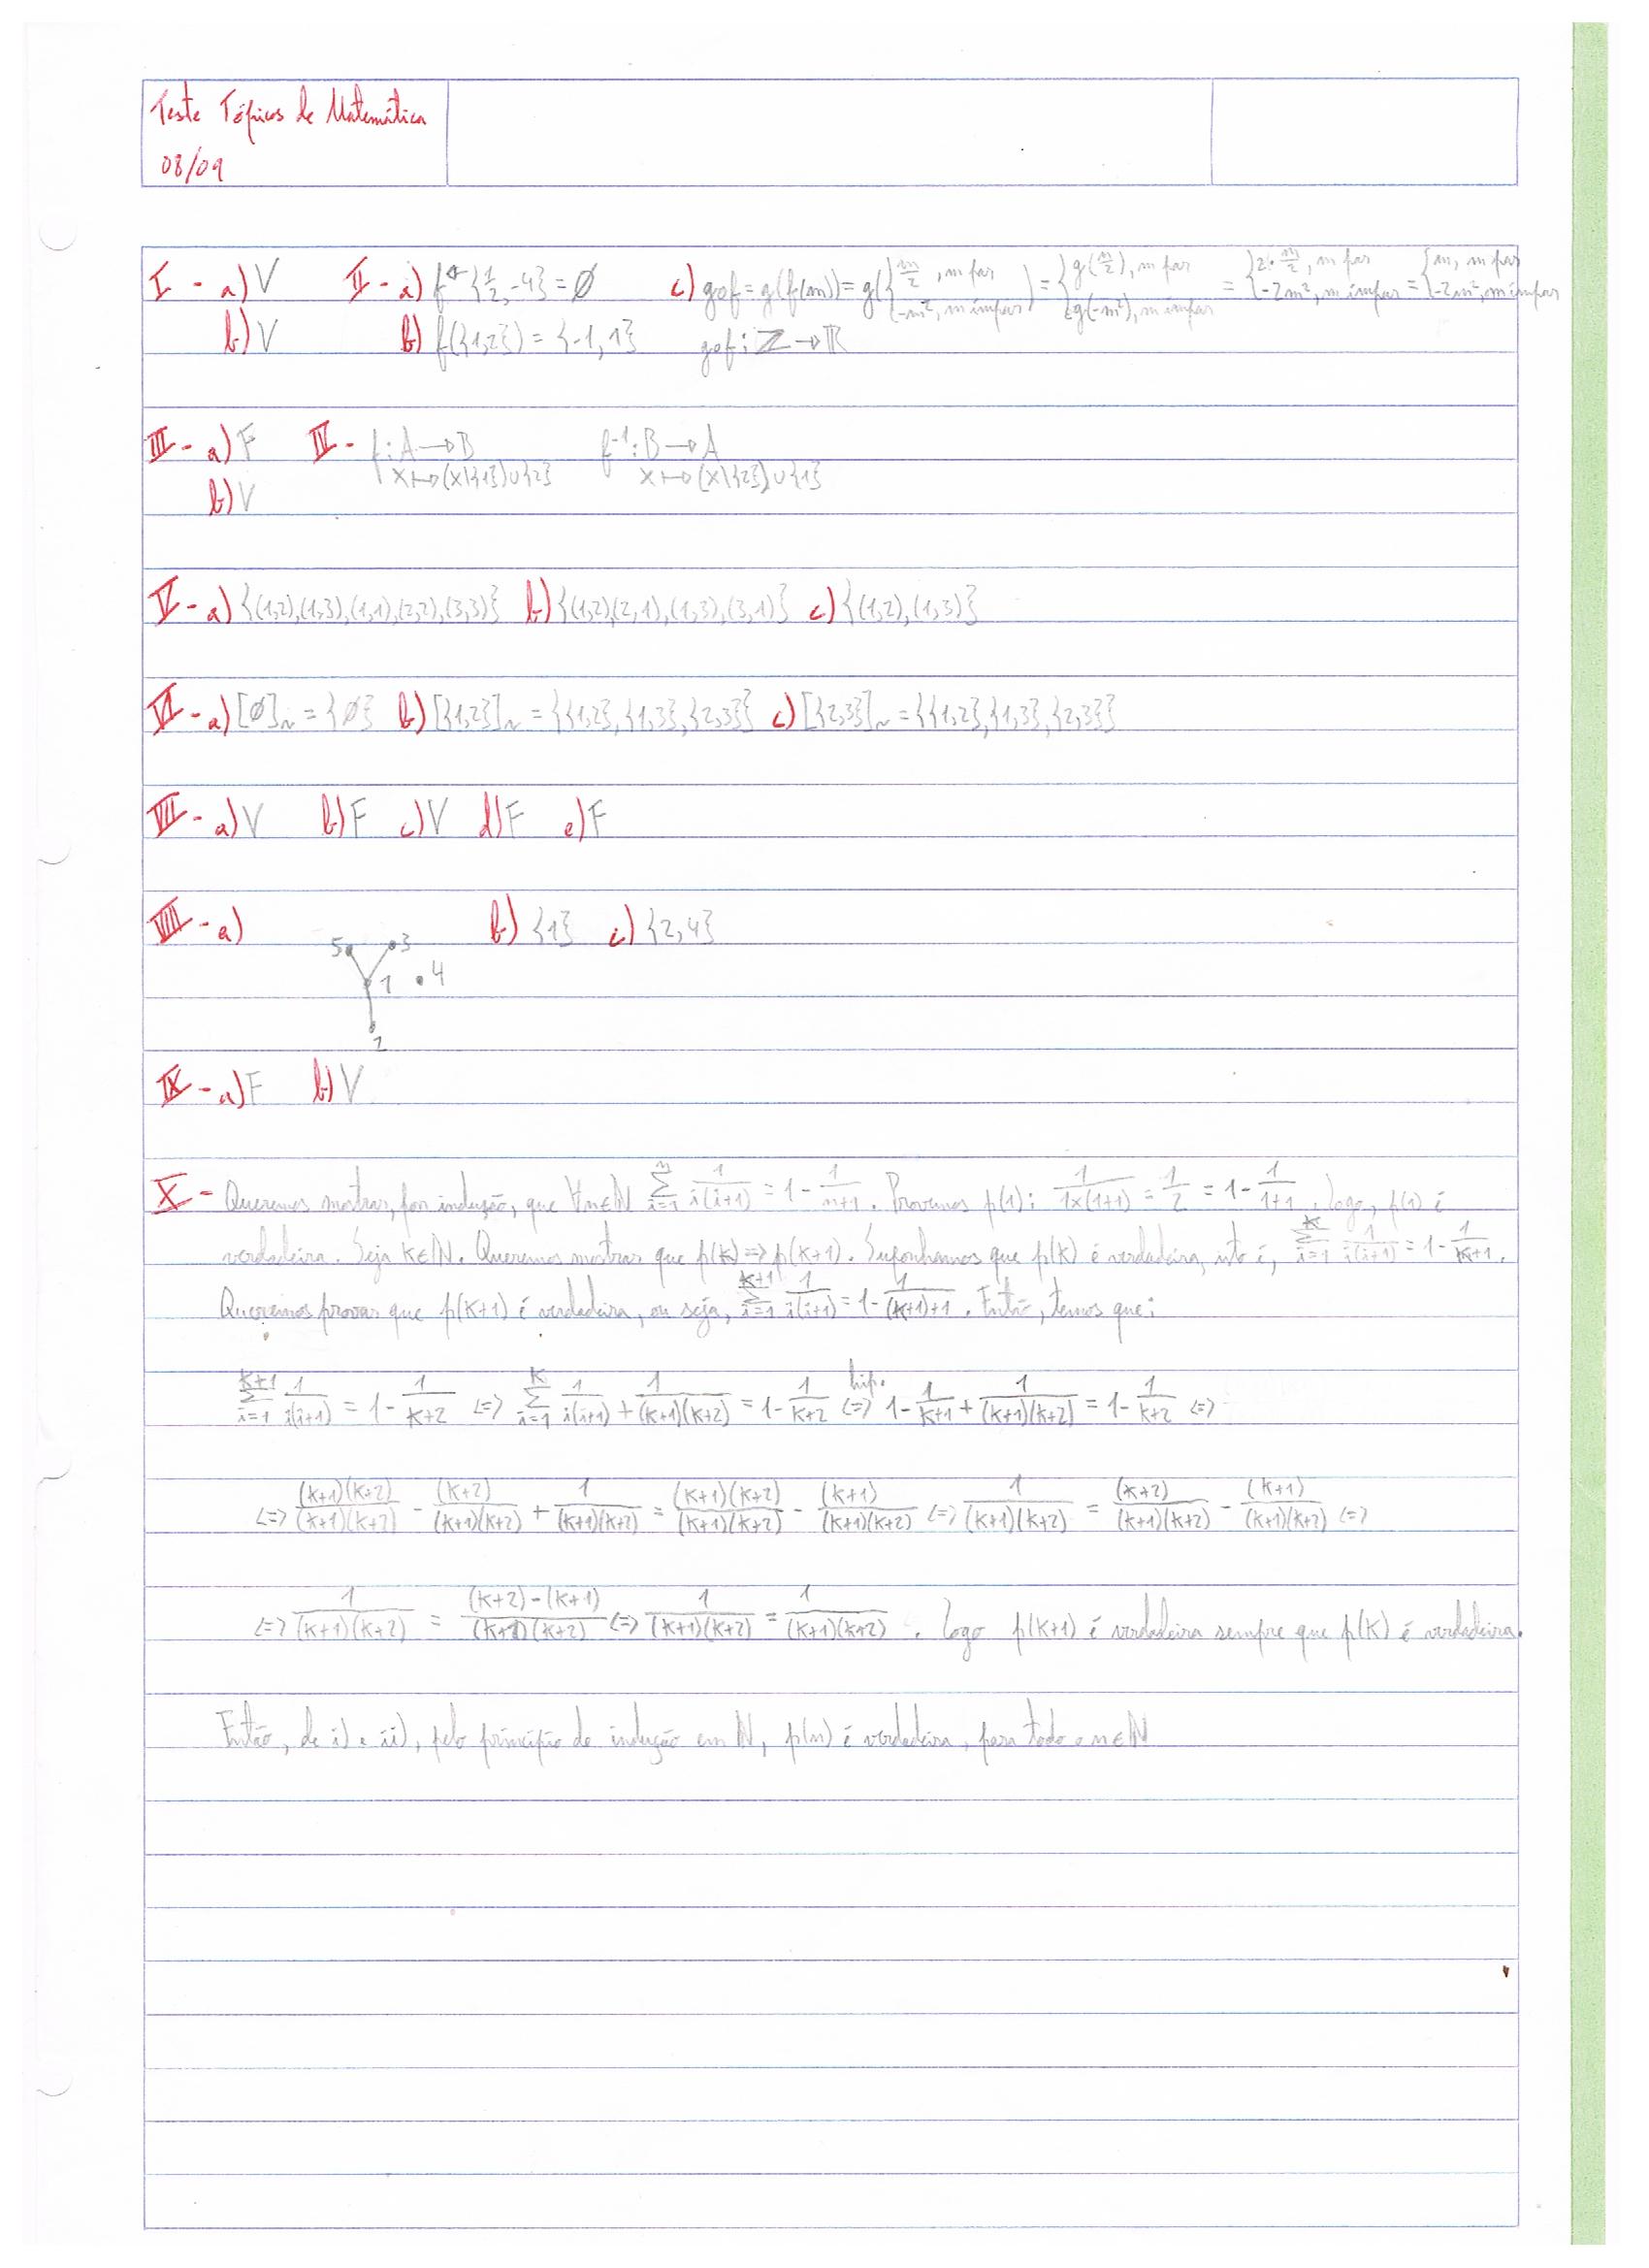 Teste Tópicos de Matemática
08/09
I - a) V II - a) f^← {1/2, -4} = ∅ c) gof = g(f(m)) = g({m/2, m par; -m², m ímpar}) = {g(m/2), m par; g(-m²), m ímpar} = {2·m/2, m par; -2m², m ímpar} = {m, m par; -2m², m ímpar}
b) V b) f({1,2}) = {-1, 1} gof: ℤ → ℝ
III - a) F II - f: A → B f⁻¹: B → A
X ↦ (X\{1}) ∪ {2} X ↦ (X\{2}) ∪ {1}
b) V
V - a) {(1,2),(1,3),(1,1),(2,2),(3,3)} b) {(1,2)(2,1),(1,3),(3,1)} c) {(1,2),(1,3)}
VI - a) [∅]~ = {∅} b) [{1,2}]~ = {{1,2},{1,3},{2,3}} c) [{2,3}]~ = {{1,2},{1,3},{2,3}}
VII - a) V b) F c) V d) F e) F
VIII - a) b) {1} c) {2,4}
5 3
1 4
2
IX - a) F b) V
X - Queremos mostrar, por indução, que ∀n∈ℕ ∑_{i=1}^{n} 1/(i(i+1)) = 1 - 1/(n+1). Provemos p(1): 1/(1×(1+1)) = 1/2 = 1 - 1/(1+1). Logo, p(1) é
verdadeira. Seja K∈ℕ. Queremos mostrar que p(K) => p(K+1). Suponhamos que p(K) é verdadeira, isto é, ∑_{i=1}^{K} 1/(i(i+1)) = 1 - 1/(K+1).
Queremos provar que p(K+1) é verdadeira, ou seja, ∑_{i=1}^{K+1} 1/(i(i+1)) = 1 - 1/((K+1)+1). Então, temos que:
∑_{i=1}^{K+1} 1/(i(i+1)) = 1 - 1/(K+2) <=> ∑_{i=1}^{K} 1/(i(i+1)) + 1/((K+1)(K+2)) = 1 - 1/(K+2) <=>^{hip.} 1 - 1/(K+1) + 1/((K+1)(K+2)) = 1 - 1/(K+2) <=>
<=> (K+1)(K+2)/((K+1)(K+2)) - (K+2)/((K+1)(K+2)) + 1/((K+1)(K+2)) = (K+1)(K+2)/((K+1)(K+2)) - (K+1)/((K+1)(K+2)) <=> 1/((K+1)(K+2)) = (K+2)/((K+1)(K+2)) - (K+1)/((K+1)(K+2)) <=>
<=> 1/((K+1)(K+2)) = ((K+2)-(K+1))/((K+1)(K+2)) <=> 1/((K+1)(K+2)) = 1/((K+1)(K+2)). Logo p(K+1) é verdadeira sempre que p(K) é verdadeira.
Então, de i) e ii), pelo princípio de indução em ℕ, p(n) é verdadeira, para todo o n∈ℕ